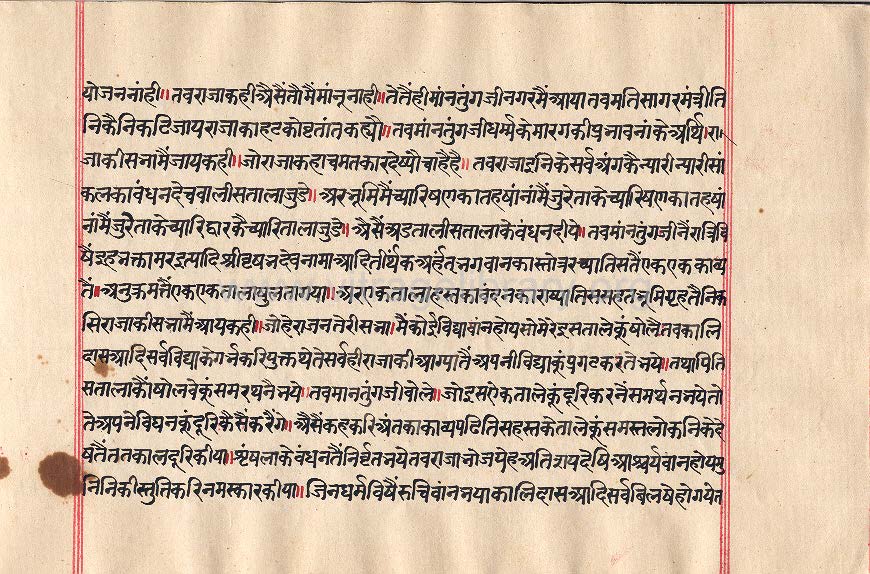 योजननांही॥ तवराजाकहीअैसैंतौमैंमांनूनाही॥ तेतैंहीमांनतुंगजीनगरमैंआयातवमतिसागरमंत्रीति
निकैनिकटिजायराजाकाहटकोवृतांतकह्यौ॥ तवमांनतुंगजीधर्म्मकेमारगकीप्रभावनांकेअर्थि।रा
जाकीसभामैंजायकही॥ जोराजाकहाचमतकारदेष्यौचाहैहै॥ तवराजाइनिकेसर्वअंगकैन्यारीन्यारीसां
कलकावंधनदेचवालीसतालाजुडे॥ अरभूमिमैंच्यारिषणकातहषांनांमैंजुरेताकेच्यारिषणकातहषां
नांमैंजुरेताकेच्यारिद्वारकैच्यारितालाजुडे॥ अैसैंअडतालीसतालाकेवंधनदीये॥ तवमांनतुंगजीनैंरात्रिवि
षैंइहभक्तामरइत्यादिश्रीवृषभदेवनामाआदितीर्थकअर्हंत्भगवानकास्तोत्ररच्यातिसतैंएकएककाव्य
तैं॥ अनुक्रमतैंएकएकतालाषुलतागया॥ अरएकतालाहस्तकावंधनकारह्यातिससहतभूमिगृहतैनिक
सिराजाकीसभामैंआयकही॥ जोहेराजनतेरीसभा।मैंकोईविद्यावांनहोयसोमेरेइसतालेकूंषोलैतवकालि
दासआदिसर्वविद्याकेगर्भकरियुक्तथेतेसर्वहीराजाकीआग्यातैंअपनीविद्याकुंप्रगटकरतेभये॥ तथापिति
सतालाकौंषोलवेकूंसमरथनैंभये॥ तवमानतुंगजीवोले॥ जोइसऐकतालेकूंदूरिकरनैंसमर्थनभयेतो
तेअपनेविघनकूंदूरिकैसैंकरैंगे॥ अैसैंकहकरिअंतकाकाव्यपढितिसहस्तकेतालेकूंसमस्तलोकनिकेदे
षतैंततकालदूरिकीया॥ शृंषलाकेवंधनतैंनिर्वृतभयेतवराजाभोजयेहअतिशयदेषिआश्चर्यवानहोयमु
निनिकीस्तुतिकरिनमस्कारकीया॥ जिनधर्मविषैंरुचिवांनभयाकालिदासआदिसर्वविलषेहोगयेत